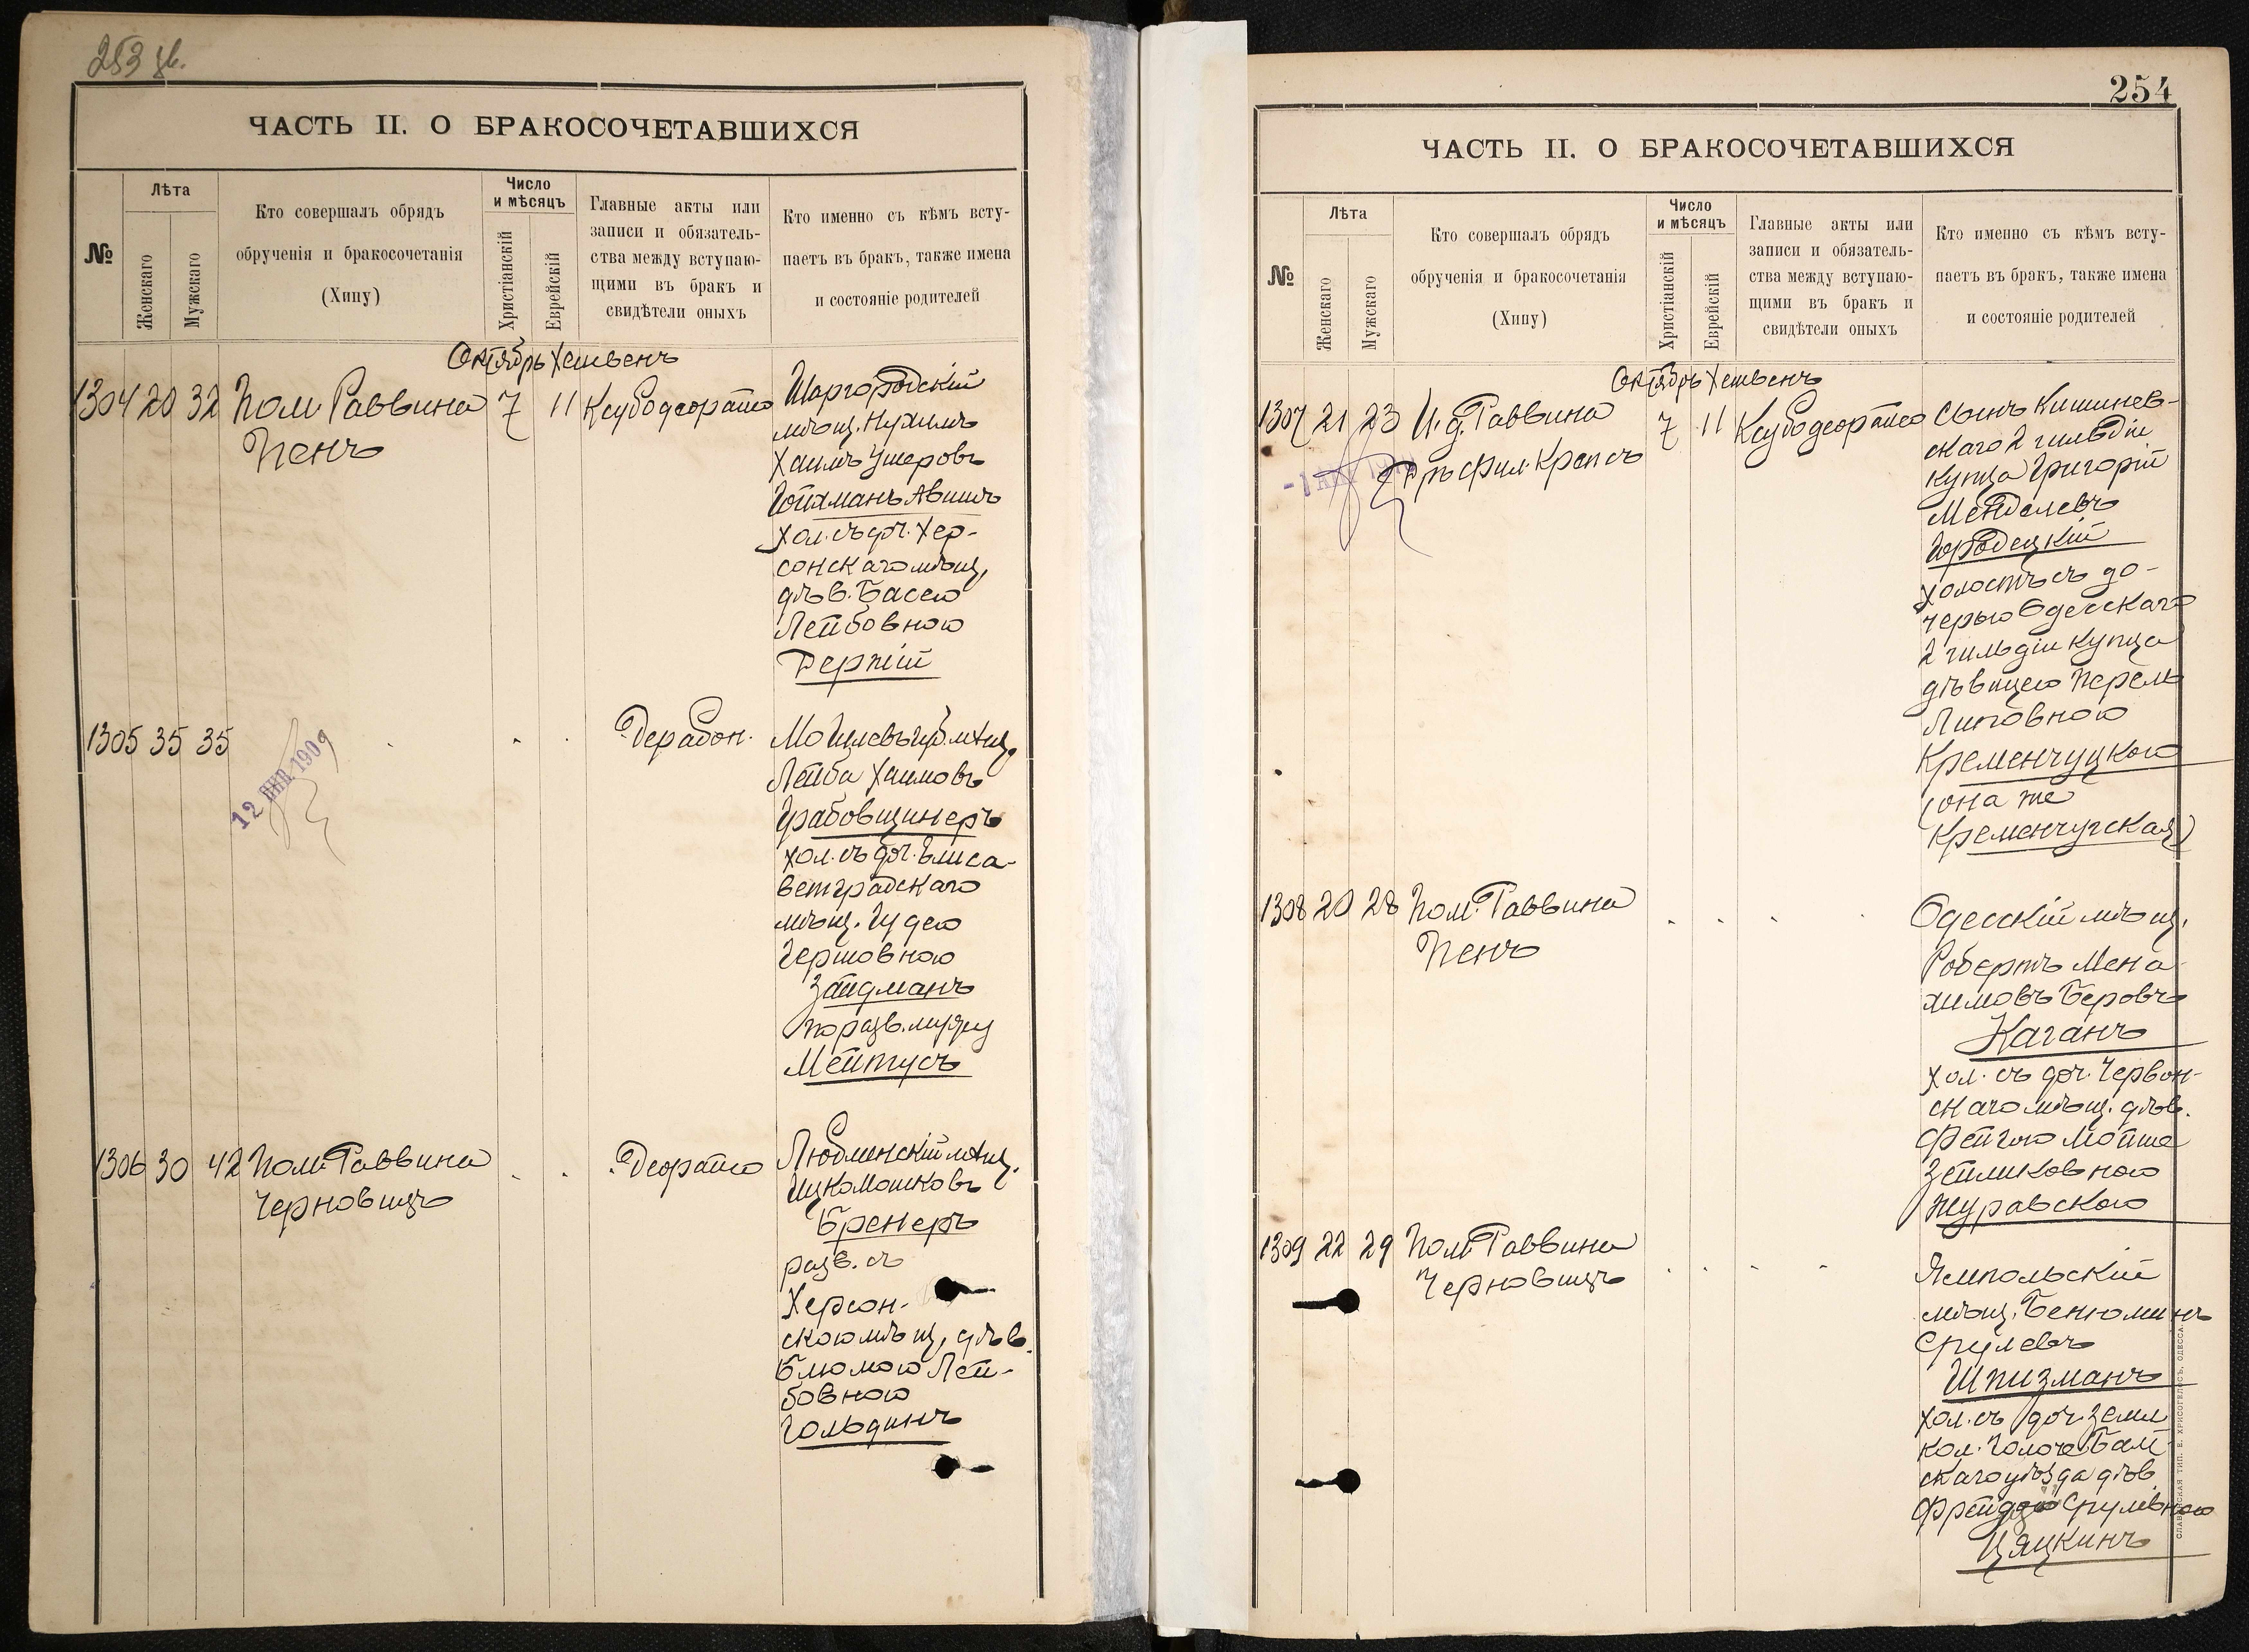 253 об.
ЧАСТЬ II. О БРАКОСОЧЕТАВШИХСЯ
№
Лѣта
Женскаго
Мужскаго
Кто совершалъ обрядъ
обрученія и бракосочетанія
(Хипу)
Число
и мѣсяцъ
Христіанскій
Еврейскій
Главные акты или
записи и обязатель-
ства между вступаю-
щими въ бракъ и
свидѣтели оныхъ
Кто именно съ кѣмъ всту-
паетъ въ бракъ, также имена
и состояніе родителей
Октябрь Хешвенъ
1304 20 32 Пом. Раввина 7 11
Пенъ
Шаргородскій
мѣщ. Нухимъ
Хаимъ Ушеровъ
Гойхманъ Авишъ
хол. съ дч. Хер-
сонскаго мѣщ.
дѣв. Басею
Лейбовною
Дерпій
1305 35 35
12 ЯНВ 1909
Дерабон.
Могилевъ губ. мѣщ.
Лейба Хаимовъ
Грабовщинеръ
хол. съ дч. Елиса-
ветградскаго
мѣщ. Гудею
Гершовною
Зайдманъ
по разв. мужу
Мейтусъ
1306 30 42 Пом. Раввина
Черновицъ
Деорайсо
Люблинскій мѣщ.
Ицко Мошковъ
Бренеръ
разв. съ
Херсон-
скою мѣщ. дѣв.
Блюмою Лей-
бовною
Гольдинъ
254
ЧАСТЬ II. О БРАКОСОЧЕТАВШИХСЯ
№
Лѣта
Женскаго
Мужскаго
Кто совершалъ обрядъ
обрученія и бракосочетанія
(Хипу)
Число
и мѣсяцъ
Христіанскій
Еврейскій
Главные акты или
записи и обязатель-
ства между вступаю-
щими въ бракъ и
свидѣтели оныхъ
Кто именно съ кѣмъ всту-
паетъ въ бракъ, также имена
и состояніе родителей
Октябрь Хешвенъ
1307 21 23 И. д. Раввина 7 11
Д-ръ Фил. Крепсъ
Сынъ Кишинев-
скаго 2 гильдіи
купца Григорій
Менделевъ
Городецкій
холостъ съ до-
черью Одесскаго
2 гильдіи купца
дѣвицею Перель
Липовною
Кременчуцкою
(она же
Кременчугская)
1308 20 28 Пом. Раввина
Пенъ
Одесскій мѣщ.
Робертъ Мена-
химовъ Беровъ
Каганъ
хол. съ дч. Червон-
скаго мѣщ. дѣв.
Фейгою Мойше
Зейликовною
Журавскою
1309 22 29 Пом. Раввина
Черновицъ
Ямпольскій
мѣщ. Бенюминъ
Срулевъ
Шпизманъ
хол. съ доч. земл.
кол. Балт-
скаго уѣзда дѣв.
Фрейдою Срулевною
Цяцкинъ
СЛАВЯНСКАЯ ТИП. Е. ХРИСОГЕЛОСЪ, ОДЕССА.